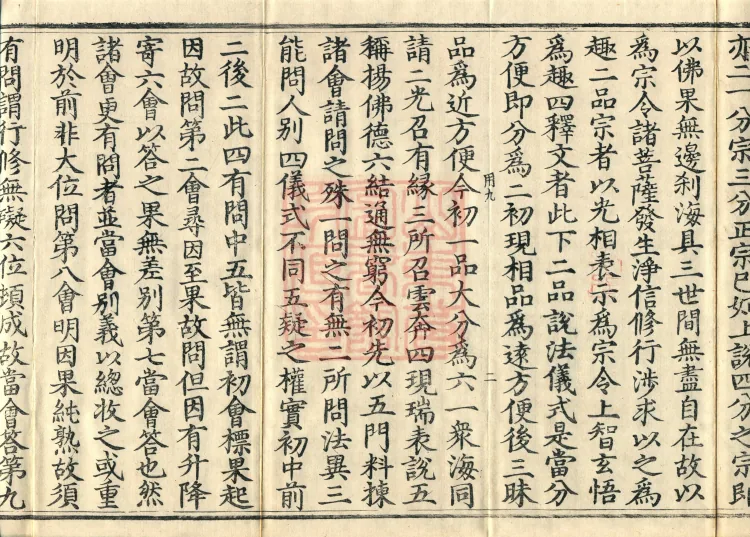 亦二一分宗三分正宗已如上說四分之宗即
以佛果無邊刹海具三世間無盡自在故以
爲宗令諸菩薩發生淨信修行涉求以之爲
趣二品宗者以光相表示爲宗令上智玄悟
爲趣四釋文者此下二品說法儀式是當分
方便即分爲二初現相品爲遠方便後三昧
用九 二
品爲近方便今初一品大分爲六一衆海同
請二光召有縁三所召雲奔四現瑞表說五
稱揚佛德六結通無窮今初先以五門料揀
諸會請問之殊一問之有無二所問法異三
能問人別四儀式不同五疑之權實初中前
二後二此四有問中五皆無謂初會標果起
因故問第二會尋因至果故問但因有升降
寄六會以答之果無差別第七當會答也然
諸會更有問者並當會別義以總收之或重
明於前非大位問第八會明因果純熟故須
有問謂行修無礙六位頓成故當會答第九